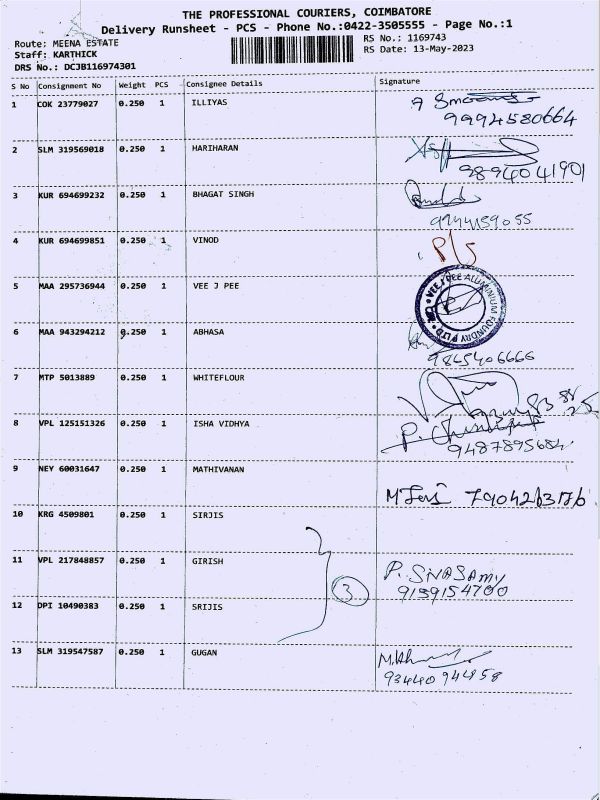 THE PROFESSIONAL COURIERS, COIMBATORE
Delivery Runsheet - PCS - Phone No.:0422-3505555 - Page No.:1
Route: MEENA ESTATE
Staff: KARTHICK
DRS No.: DCJB116974301
RS No.: 1169743
RS Date: 13-May-2023
S No Consignment No Weight PCS Consignee Details Signature
1 COK 23779027 0.250 1 ILLIYAS
9994580664
2 SLM 319569018 0.250 1 HARIHARAN
9894041901
3 KUR 694699232 0.250 1 BHAGAT SINGH
9744159055
4 KUR 694699851 0.250 1 VINOD
P/S
5 MAA 295736944 0.250 1 VEE J PEE
VEE JPEE ALUMINIUM FOUNDRY P LTD
6 MAA 943294212 0.250 1 ABHASA
9865406666
7 MTP 5013889 0.250 1 WHITEFLOUR
8 VPL 125151326 0.250 1 ISHA VIDHYA
9487895684
9 NEY 60031647 0.250 1 MATHIVANAN
10 KRG 4509801 0.250 1 SIRJIS
11 VPL 217848857 0.250 1 GIRISH
3
P. SIVASAMY
9159154700
12 DPI 10490383 0.250 1 SRIJIS
13 SLM 319547587 0.250 1 GUGAN
9344094458